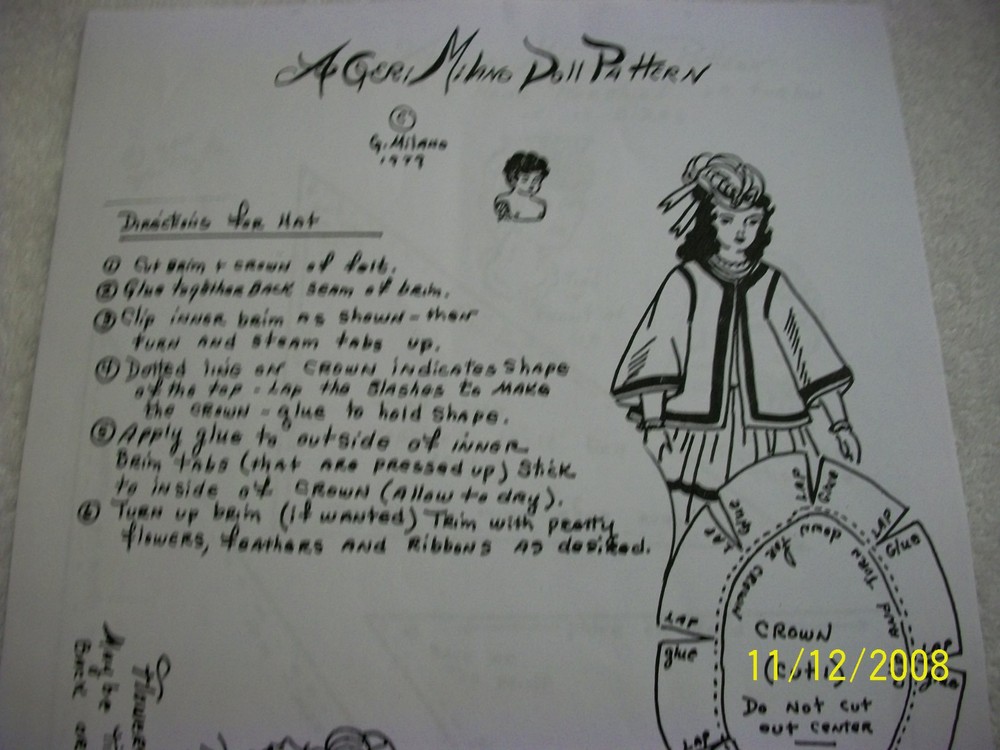 A Geri Milano Doll Pattern
©
G. Milano
1999
Directions for Hat
① Cut brim & crown of felt.
② Glue together back seam of brim.
③ Clip inner brim as shown - then
turn and steam tabs up.
④ Dotted line on crown indicates shape
of the top - Lap the slashes to make
the crown - glue to hold shape.
⑤ Apply glue to outside of inner
brim tabs (that are pressed up) stick
to inside of crown (allow to dry).
⑥ Turn up brim (if wanted) Trim with pretty
flowers, feathers and ribbons as desired.
Lap
Glue
Lap
Glue
Lap
Glue
Lap
glue
Lap
and turn down for crown
CROWN
(cut 1)
Do Not cut
out center
11/12/2008